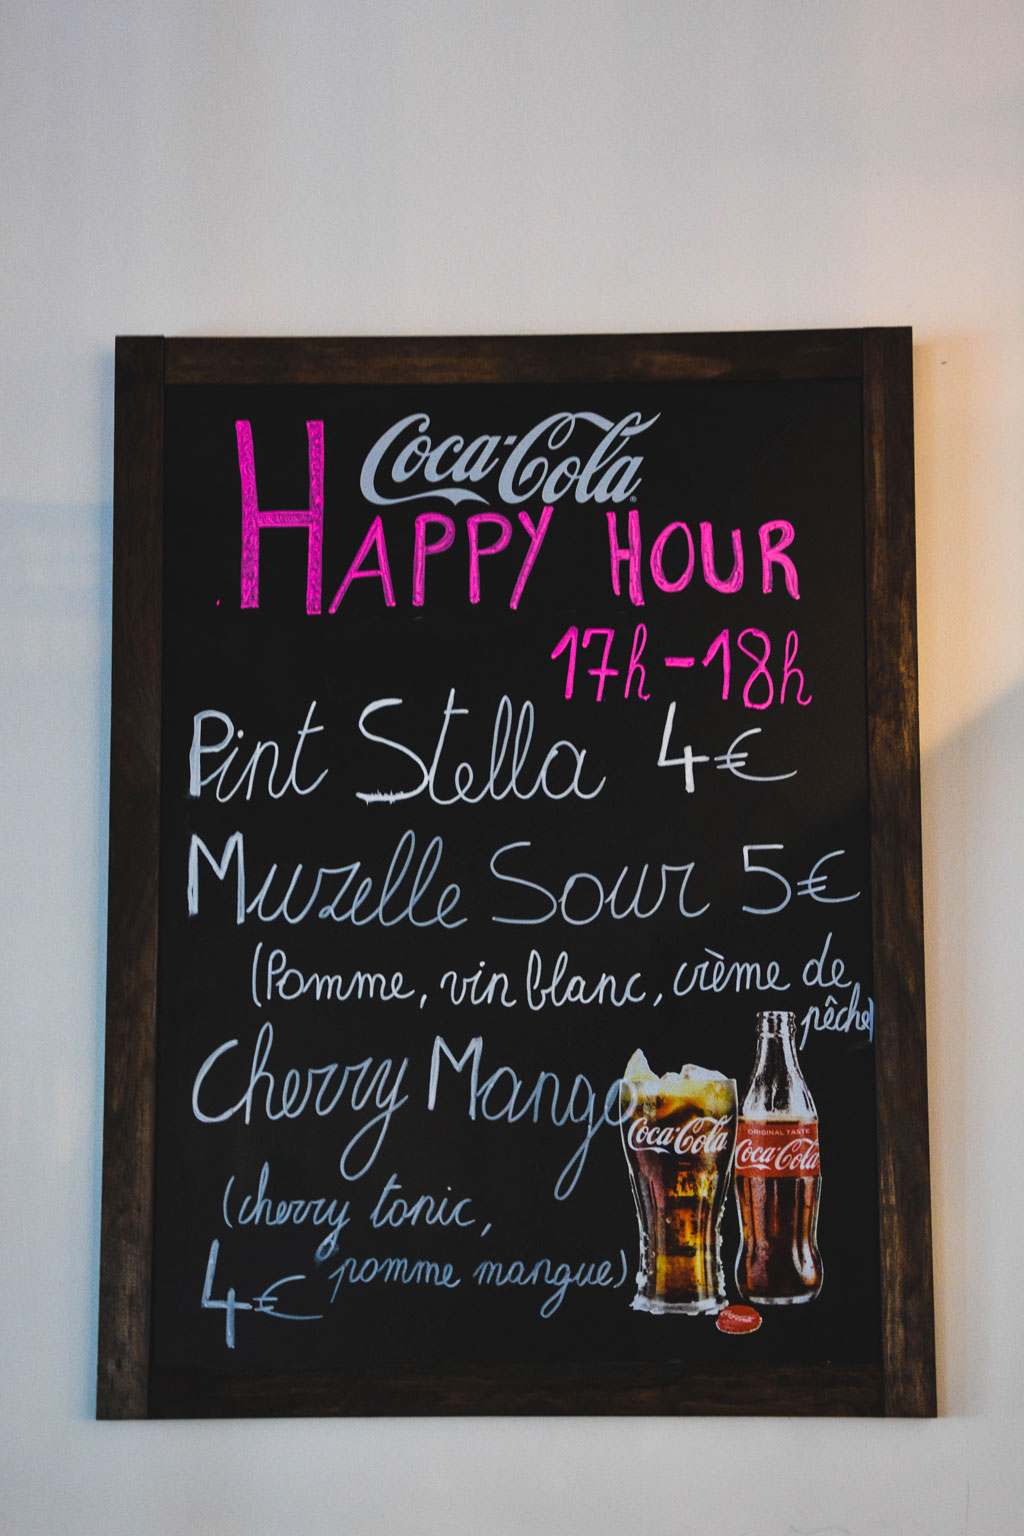 Coca-Cola
HAPPY HOUR
17h-18h
Pint Stella 4€
Muzelle Sour 5€
(Pomme, vin blanc, crème de
pêche)
Cherry Mango
(cherry tonic,
pomme mangue)
4€
Coca-Cola
ORIGINAL TASTE
Coca-Cola